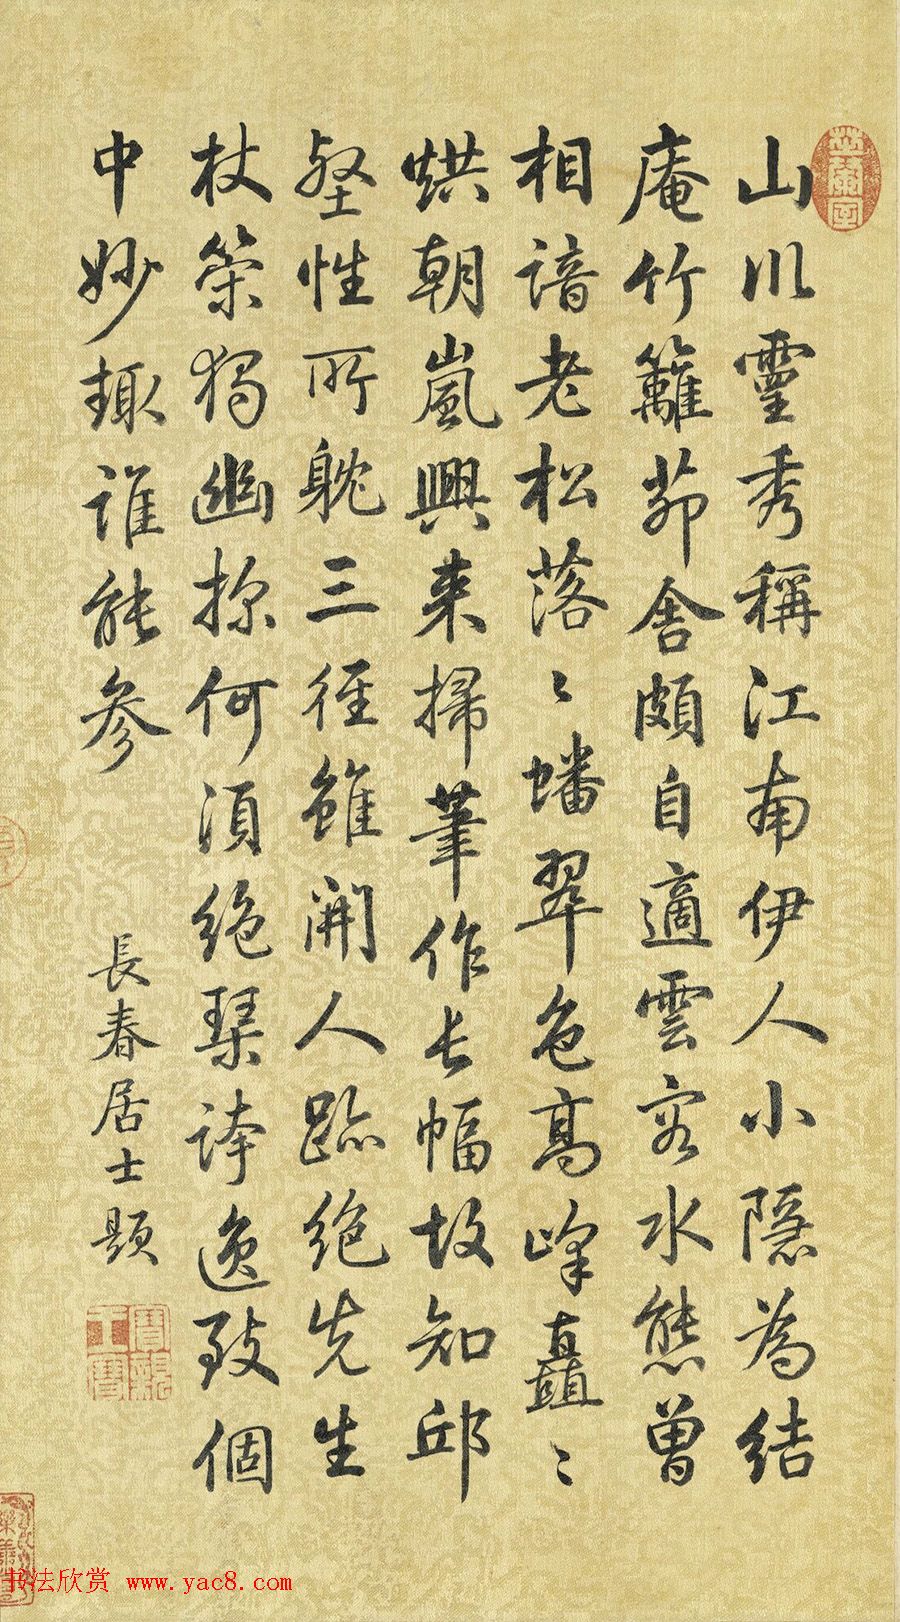 山川靈秀稱江南伊人小隱為結
庵竹籬茆舍頗自適雲容水態曾
相諳老松落〻蟠翠色高峰矗〻
烘朝嵐興來掃筆作長幅故知邱
壑性所躭三徑雖開人跡絶先生
杖策獨幽探何須絶琹誇逸致個
中妙趣誰能參
長春居士題
寶親王寶
书法欣赏 www.yac8.com